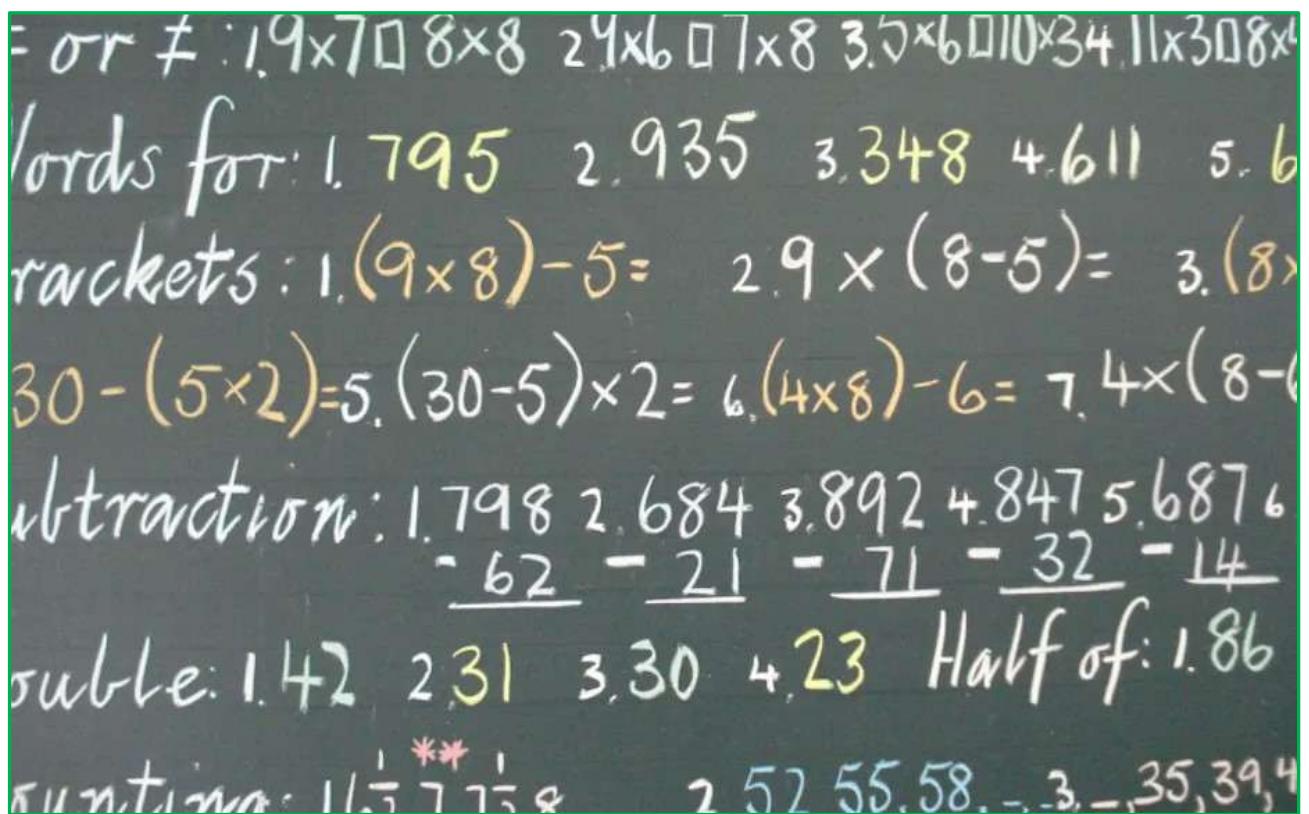 = or ≠ : 1. 9×7 □ 8×8 2. 9×6 □ 7×8 3. 5×6 □ 10×3 4. 11×3 □ 8×
ords for: 1. 795 2. 935 3. 348 4. 611 5. 6
rackets: 1. (9×8)-5= 2. 9×(8-5)= 3. (8×
30-(5×2)= 5. (30-5)×2= 6. (4×8)-6= 7. 4×(8-6
ubtraction: 1. 798 2. 684 3. 892 4. 847 5. 687 6
- 62 - 21 - 71 - 32 - 14
ouble: 1. 42 2. 31 3. 30 4. 23 Half of: 1. 86
**
ounting: 2. 52, 55, 58, -, - 3. -, 35, 39, 4